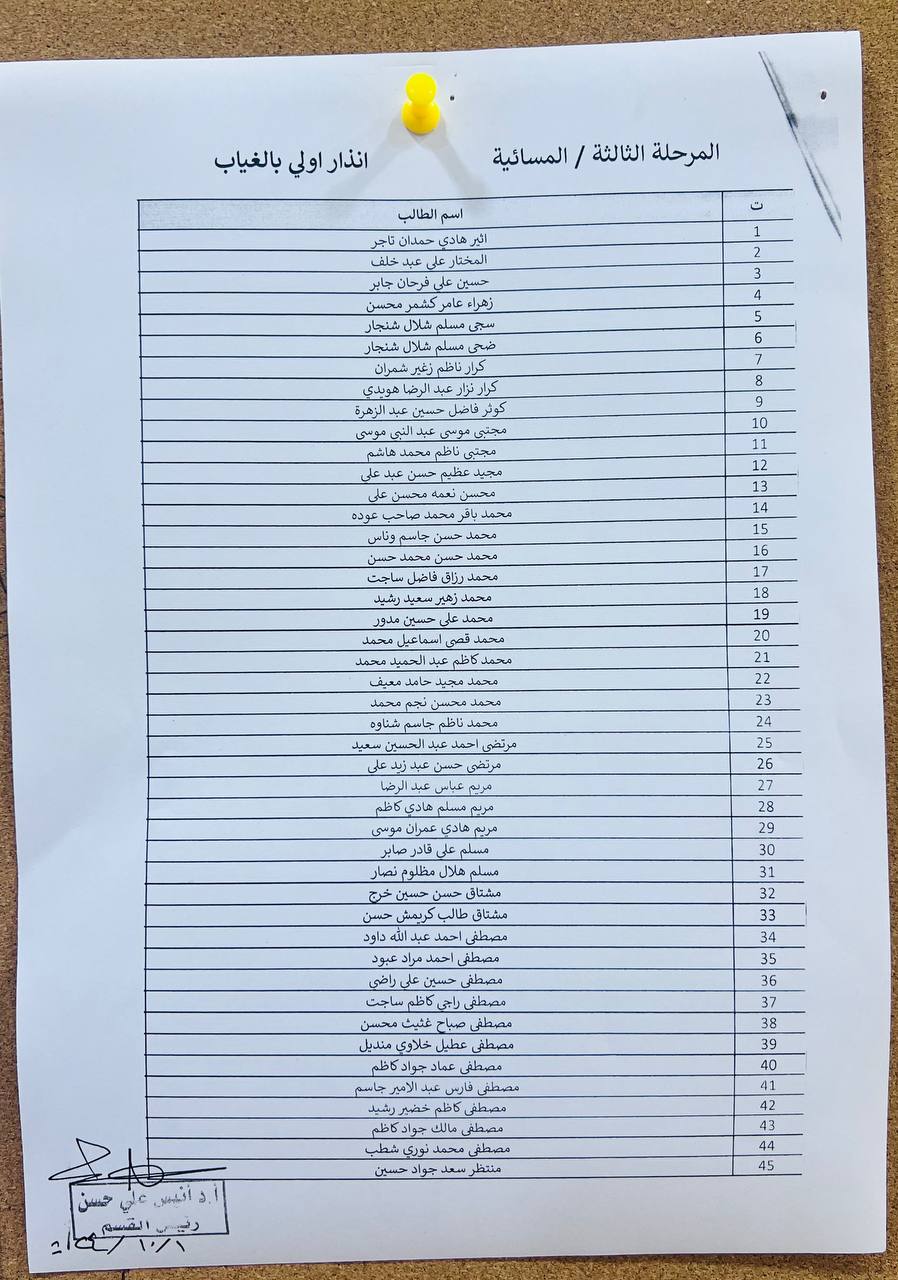 المرحلة الثالثة / المسائية انذار اولي بالغياب
ت اسم الطالب
1 اثير هادي حمدان تاجر
2 المختار علي عبد خلف
3 حسين علي فرحان جابر
4 زهراء عامر كشمر محسن
5 سجى مسلم شلال شنجار
6 ضحى مسلم شلال شنجار
7 كرار ناظم زغير شمران
8 كرار نزار عبد الرضا هويدي
9 كوثر فاضل حسين عبد الزهرة
10 مجتبى موسى عبد النبي موسى
11 مجتبى ناظم محمد هاشم
12 مجيد عظيم حسن عبد علي
13 محسن نعمه محسن علي
14 محمد باقر محمد صاحب عوده
15 محمد حسن جاسم وناس
16 محمد حسن محمد حسن
17 محمد رزاق فاضل ساجت
18 محمد زهير سعيد رشيد
19 محمد علي حسين مدور
20 محمد قصي اسماعيل محمد
21 محمد كاظم عبد الحميد محمد
22 محمد مجيد حامد معيف
23 محمد محسن نجم محمد
24 محمد ناظم جاسم شناوه
25 مرتضى احمد عبد الحسين سعيد
26 مرتضى حسن عبد زيد علي
27 مريم عباس عبد الرضا
28 مريم مسلم هادي كاظم
29 مريم هادي عمران موسى
30 مسلم علي قادر صابر
31 مسلم هلال مظلوم نصار
32 مشتاق حسن حسين خرج
33 مشتاق طالب كريمش حسن
34 مصطفى احمد عبد الله داود
35 مصطفى احمد مراد عبود
36 مصطفى حسين علي راضي
37 مصطفى راجي كاظم ساجت
38 مصطفى صباح غثيث محسن
39 مصطفى عطيل خلاوي منديل
40 مصطفى عماد جواد كاظم
41 مصطفى فارس عبد الامير جاسم
42 مصطفى كاظم خضير رشيد
43 مصطفى مالك جواد كاظم
44 مصطفى محمد نوري شطب
45 منتظر سعد جواد حسين
أ.د أنيس علي حسن
رئيس القسم